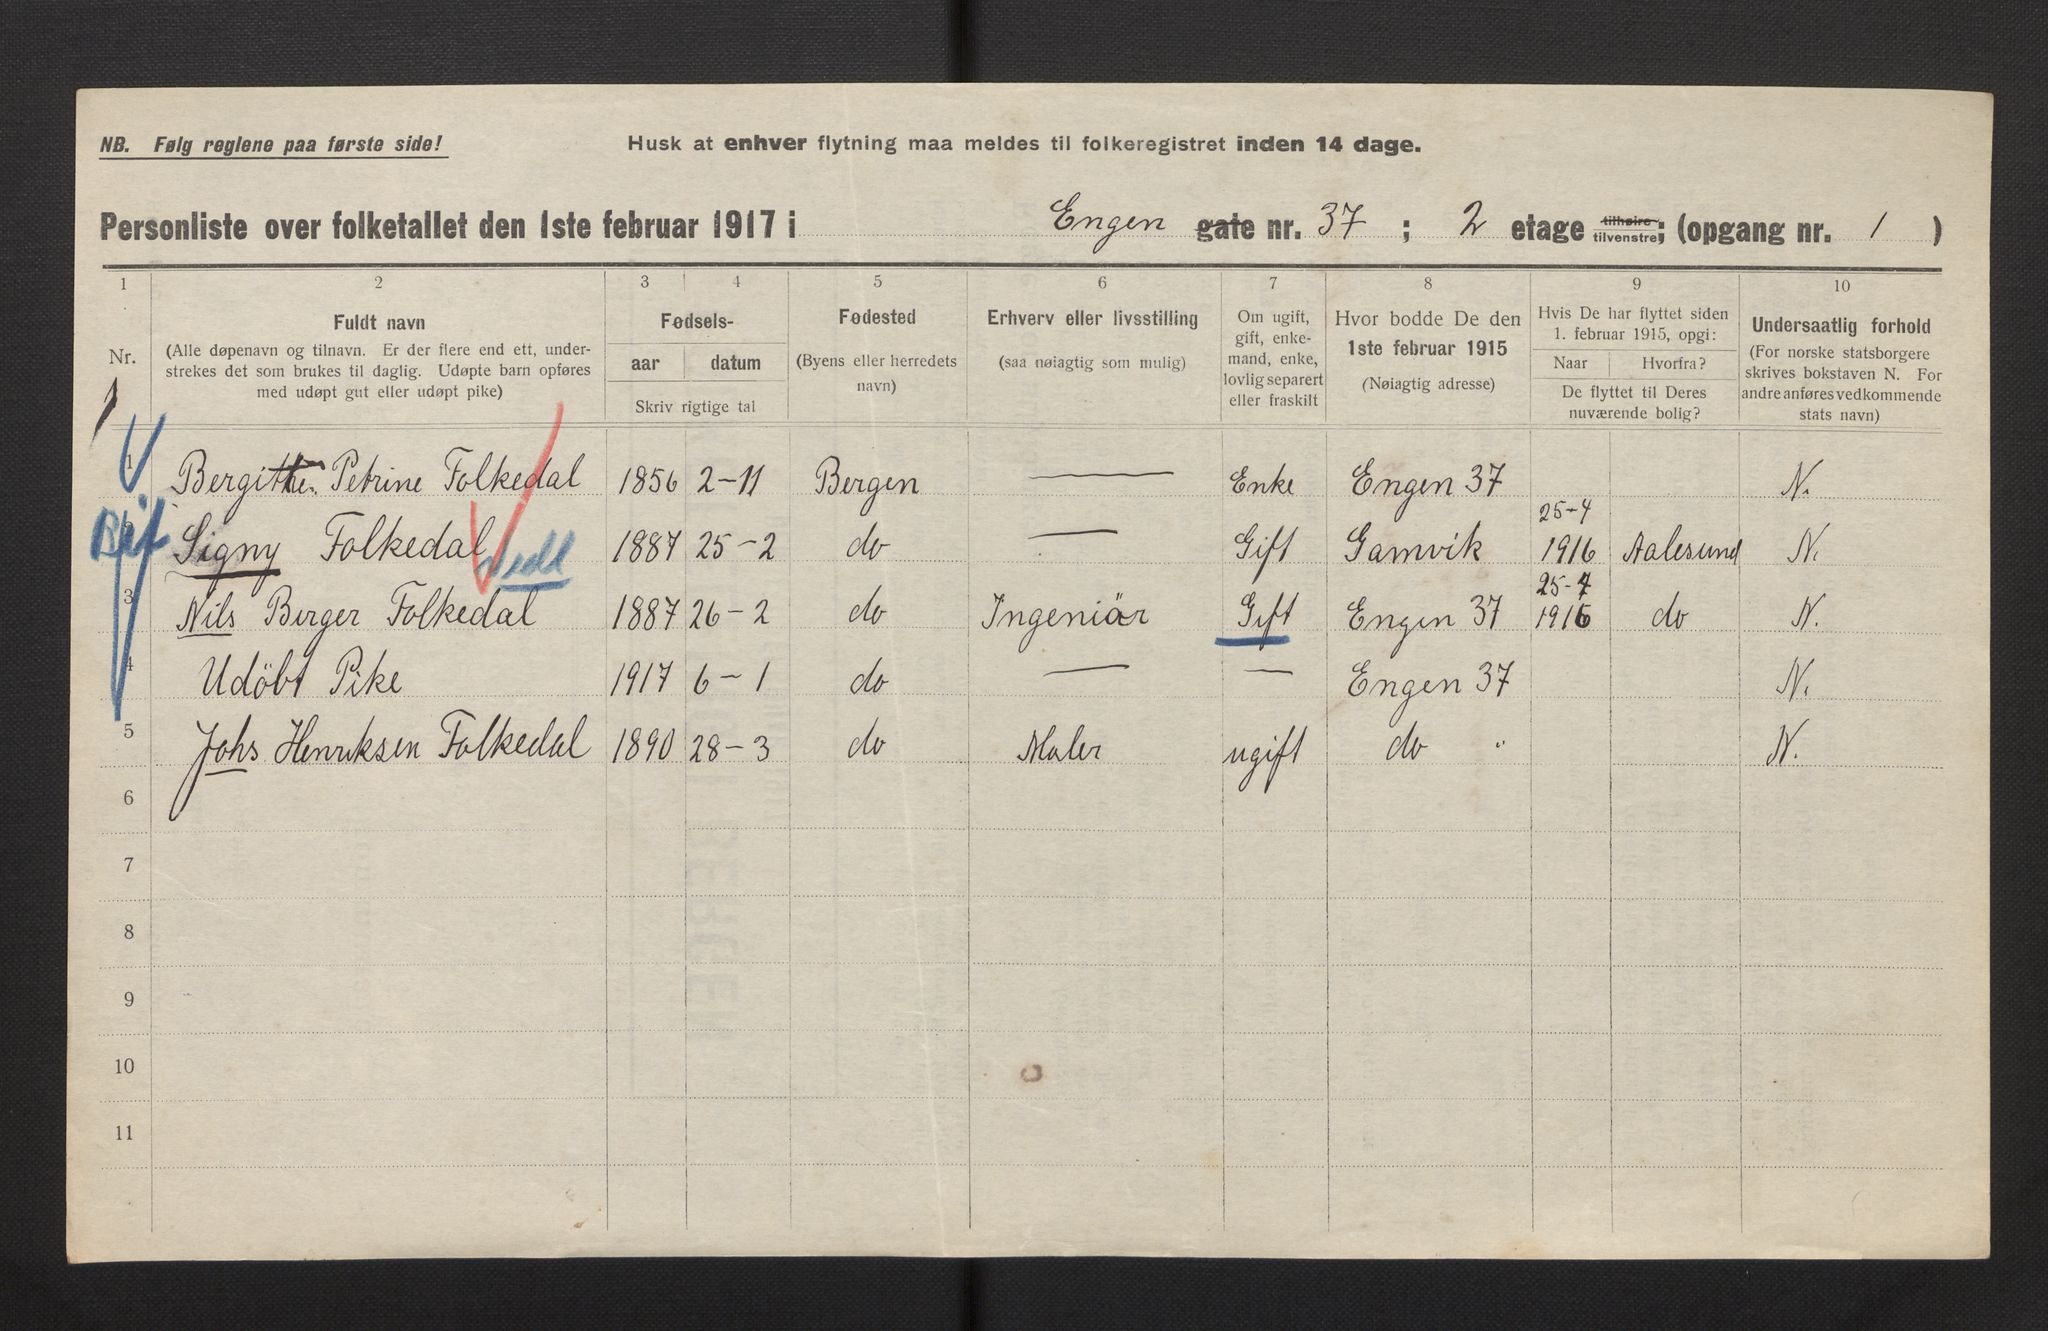 NB. Følg reglene paa første side!
Husk at enhver flytning maa meldes til folkeregistret inden 14 dage.
Personliste over folketallet den 1ste februar 1917 i Engen gate nr. 37 ; 2 etage tilhøire tilvenstre; (opgang nr. 1 )
1 2 3 4 5 6 7 8 9 10
Nr. Fuldt navn (Alle døpenavn og tilnavn. Er der flere end ett, under-
strekes det som brukes til daglig. Udøpte barn opføres
med udøpt gut eller udøpt pike)
Fødsels-
aar datum
Skriv rigtige tal
Fødested
(Byens eller herredets
navn)
Erhverv eller livsstilling
(saa nøiagtig som mulig)
Om ugift,
gift, enke-
mand, enke,
lovlig separert
eller fraskilt
Hvor bodde De den
1ste februar 1915
(Nøiagtig adresse)
Hvis De har flyttet siden
1. februar 1915, opgi:
Naar Hvorfra?
De flyttet til Deres
nuværende bolig?
Undersaatlig forhold
(For norske statsborgere
skrives bokstaven N. For
andre anføres vedkommende
stats navn)
1
1 Bergitthe Petrine Folkedal 1856 2-11 Bergen — Enke Engen 37 N.
2 Signy Folkedal 1887 25-2 do — Gift Gamvik 25-4 1916 Aalesund N.
3 Nils Berger Folkedal 1887 26-2 do Ingeniär Gift Engen 37 25-4 1916 do N.
4 Udöbt Pike 1917 6-1 do — — Engen 37 N.
5 Johs Henriksen Folkedal 1890 28-3 do Maler ugift do " N.
6
7
8
9
10
11